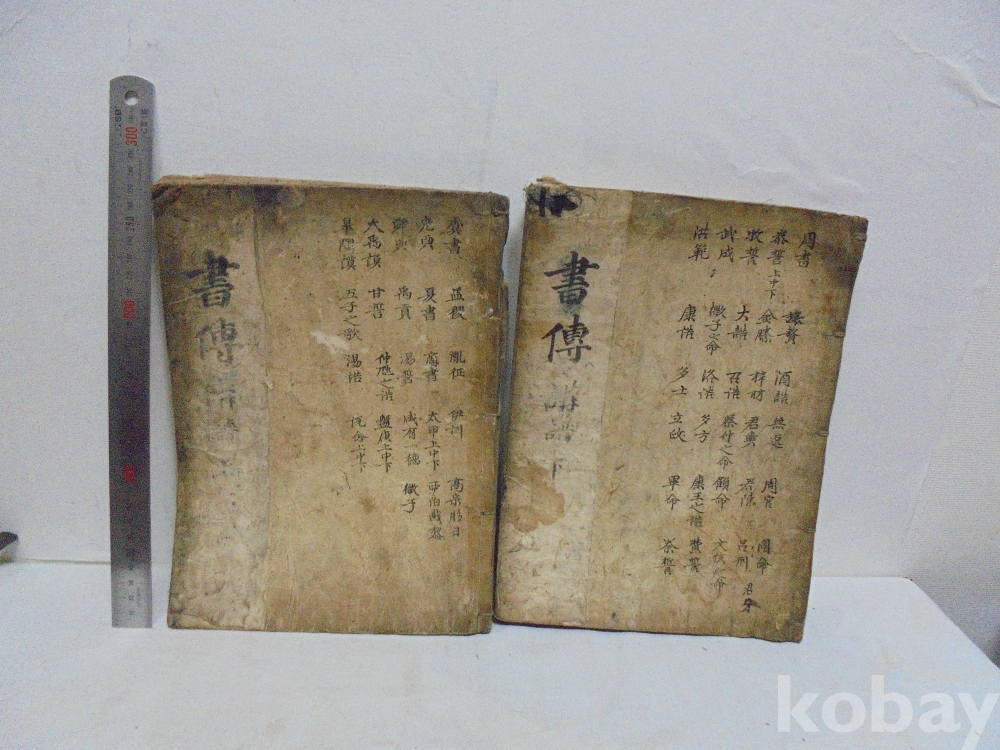 書傳
虞書 益稷 胤征 伊訓 高宗肜日
堯典 夏書 商書 太甲上中下 西伯戡黎
舜典 禹貢 湯誓 咸有一德 微子
大禹謨 甘誓 仲虺之誥 盤庚上中下
皐陶謨 五子之歌 湯誥 說命上中下
書傳講譜下
周書 旅獒 酒誥 無逸 周官 冏命
泰誓上中下 金縢 梓材 君奭 君陳 呂刑 君牙
牧誓 大誥 召誥 蔡仲之命 顧命 文侯之命
武成 微子之命 洛誥 多方 康王之誥 費誓
洪範 康誥 多士 立政 畢命 秦誓
300
kobay